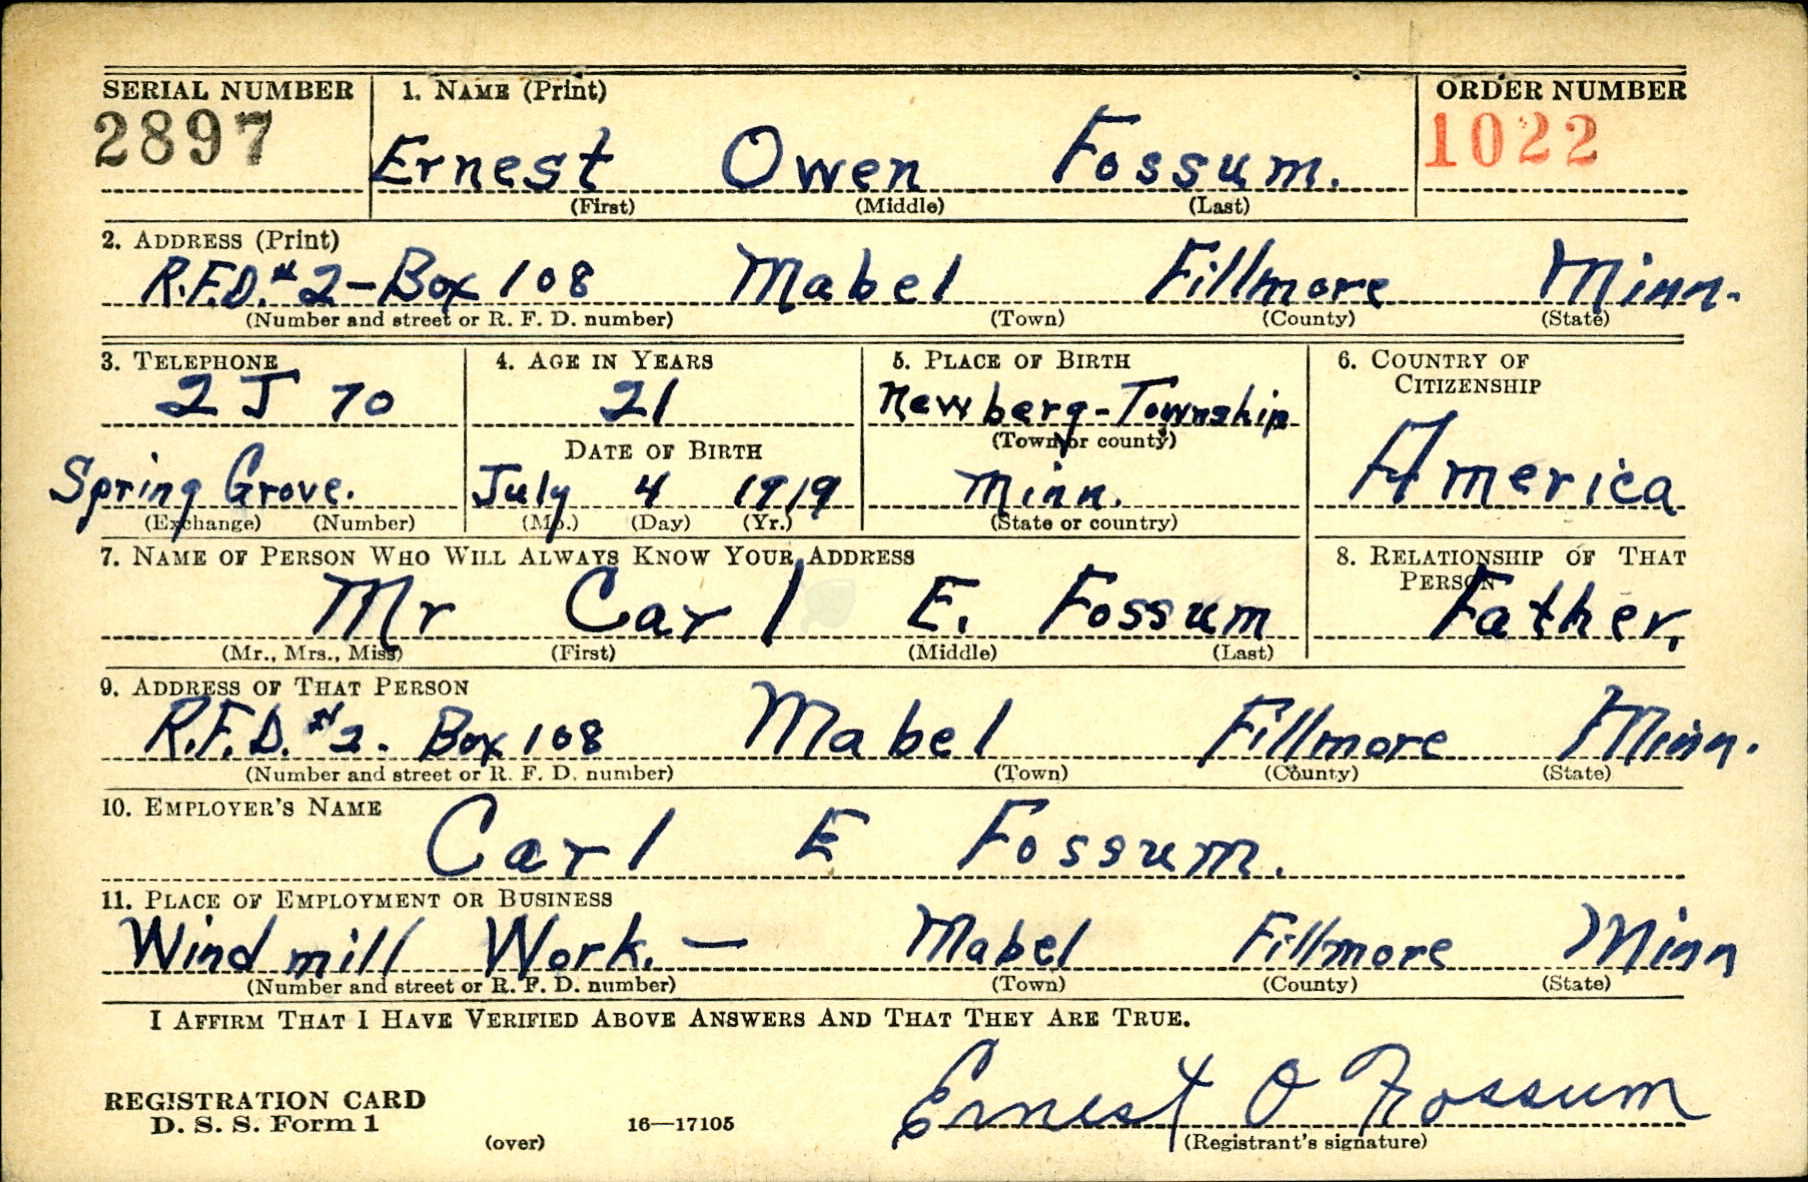 SERIAL NUMBER 1. NAME (Print) ORDER NUMBER
2897 Ernest Owen Fossum. 1022
(First) (Middle) (Last)
2. ADDRESS (Print)
R.F.D. # 2 - Box 108 Mabel Fillmore Minn.
(Number and street or R. F. D. number) (Town) (County) (State)
3. TELEPHONE 4. AGE IN YEARS 5. PLACE OF BIRTH 6. COUNTRY OF
CITIZENSHIP
2 J 70 21 Newberg-Township
DATE OF BIRTH (Town or county)
Spring Grove. July 4 1919 Minn. America
(Exchange) (Number) (Mo.) (Day) (Yr.) (State or country)
7. NAME OF PERSON WHO WILL ALWAYS KNOW YOUR ADDRESS 8. RELATIONSHIP OF THAT
PERSON
Mr Carl E. Fossum Father.
(Mr., Mrs., Miss) (First) (Middle) (Last)
9. ADDRESS OF THAT PERSON
R.F.D. #2. Box 108 Mabel Fillmore Minn.
(Number and street or R. F. D. number) (Town) (County) (State)
10. EMPLOYER'S NAME
Carl E Fossum.
11. PLACE OF EMPLOYMENT OR BUSINESS
Wind mill Work. — Mabel Fillmore Minn
(Number and street or R. F. D. number) (Town) (County) (State)
I AFFIRM THAT I HAVE VERIFIED ABOVE ANSWERS AND THAT THEY ARE TRUE.
Ernest O Fossum
REGISTRATION CARD
D. S. S. Form 1 (over) 16—17105 (Registrant's signature)